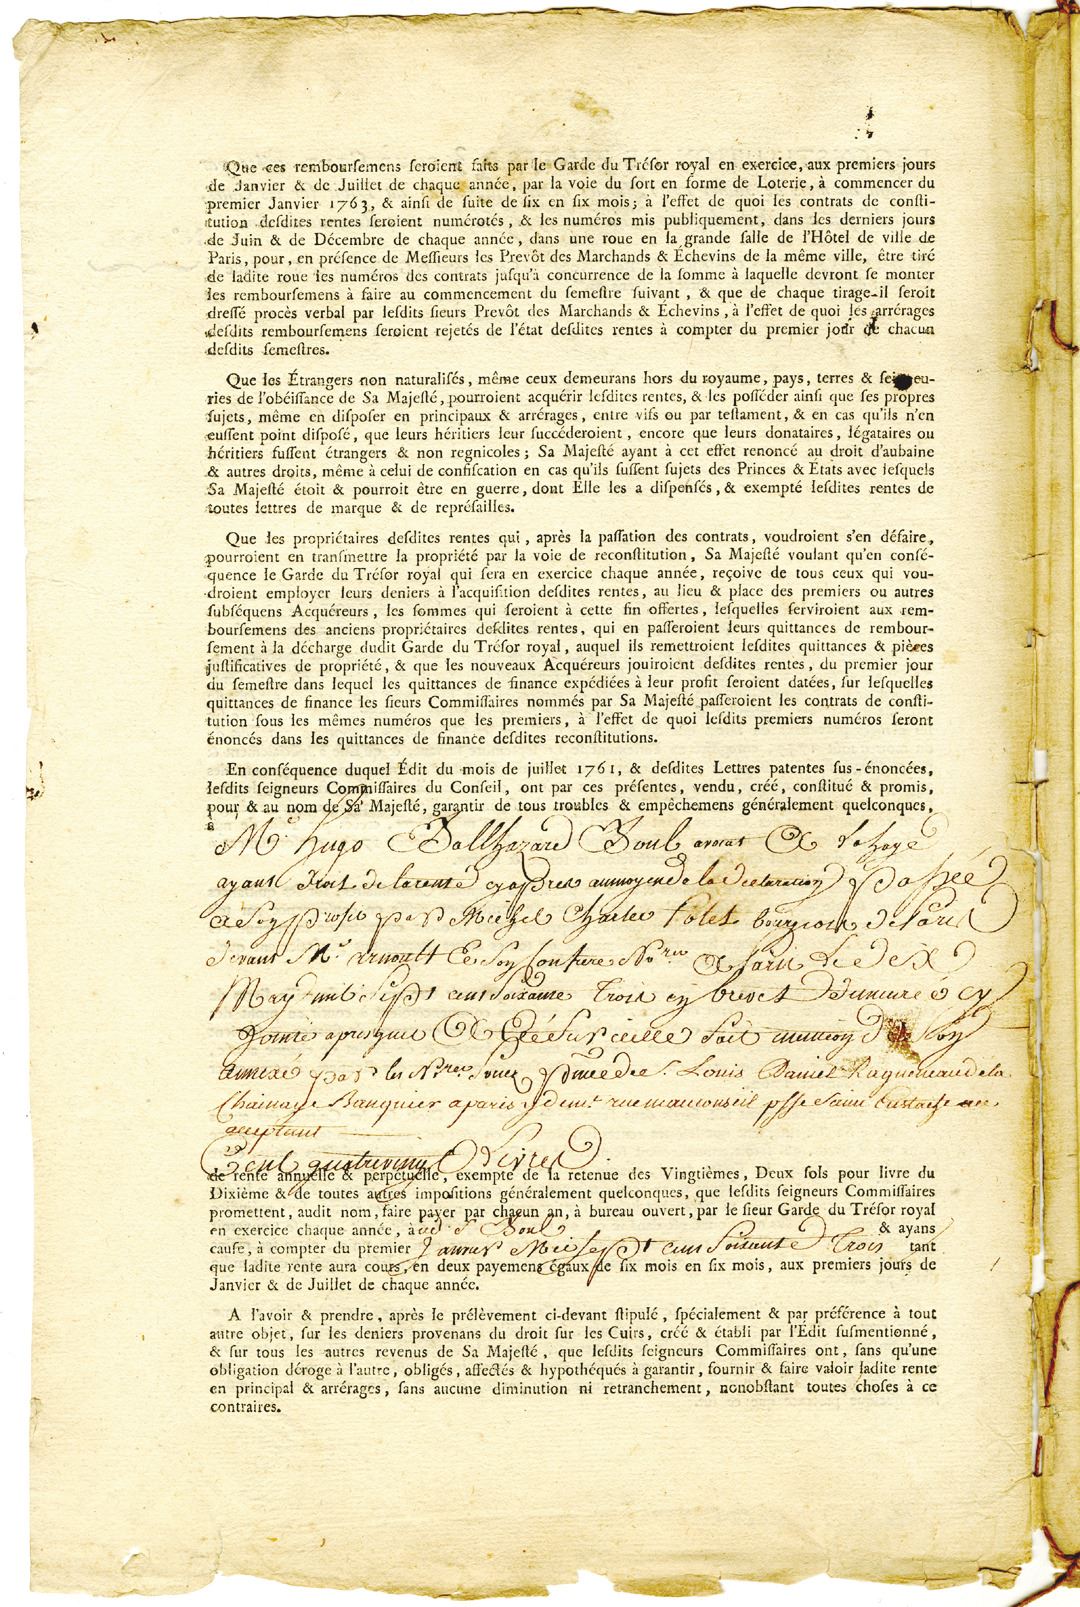 Que ces rembourſemens ſeroient faits par le Garde du Tréſor royal en exercice, aux premiers jours
de Janvier & de Juillet de chaque année, par la voie du ſort en forme de Loterie, à commencer du
premier Janvier 1763, & ainſi de ſuite de ſix en ſix mois; à l'effet de quoi les contrats de conſti-
tution deſdites rentes ſeroient numérotés, & les numéros mis publiquement, dans les derniers jours
de Juin & de Décembre de chaque année, dans une roue en la grande ſalle de l'Hôtel de ville de
Paris, pour, en préſence de Meſſieurs les Prevôt des Marchands & Échevins de la même ville, être tiré
de ladite roue les numéros des contrats juſqu'à concurrence de la ſomme à laquelle devront ſe monter
les rembourſemens à faire au commencement du ſemeſtre ſuivant, & que de chaque tirage il ſeroit
dreſſé procès verbal par leſdits ſieurs Prevôt des Marchands & Échevins, à l'effet de quoi les arrérages
deſdits rembourſemens ſeroient rejetés de l'état deſdites rentes à compter du premier jour de chacun
deſdits ſemeſtres.
Que les Étrangers non naturaliſés, même ceux demeurans hors du royaume, pays, terres & ſeigneu-
ries de l'obéiſſance de Sa Majeſté, pourroient acquérir leſdites rentes, & les poſſéder ainſi que ſes propres
ſujets, même en diſpoſer en principaux & arrérages, entre vifs ou par teſtament, & en cas qu'ils n'en
euſſent point diſpoſé, que leurs héritiers leur ſuccéderoient, encore que leurs donataires, légataires ou
héritiers fuſſent étrangers & non regnicoles; Sa Majeſté ayant à cet effet renoncé au droit d'aubaine
& autres droits, même à celui de confiſcation en cas qu'ils fuſſent ſujets des Princes & États avec leſquels
Sa Majeſté étoit & pourroit être en guerre, dont Elle les a diſpenſés, & exempté leſdites rentes de
toutes lettres de marque & de repréſailles.
Que les propriétaires deſdites rentes qui, après la paſſation des contrats, voudroient s'en défaire,
pourroient en tranſmettre la propriété par la voie de reconſtitution, Sa Majeſté voulant qu'en conſé-
quence le Garde du Tréſor royal qui ſera en exercice chaque année, reçoive de tous ceux qui vou-
droient employer leurs deniers à l'acquiſition deſdites rentes, au lieu & place des premiers ou autres
ſubſéquens Acquéreurs, les ſommes qui ſeroient à cette fin offertes, leſquelles ſerviroient aux rem-
bourſemens des anciens propriétaires deſdites rentes, qui en paſſeroient leurs quittances de rembour-
ſement à la décharge dudit Garde du Tréſor royal, auquel ils remettroient leſdites quittances & pièces
juſtificatives de propriété, & que les nouveaux Acquéreurs jouiroient deſdites rentes, du premier jour
du ſemeſtre dans lequel les quittances de finance expédiées à leur profit ſeroient datées, ſur leſquelles
quittances de finance les ſieurs Commiſſaires nommés par Sa Majeſté paſſeroient les contrats de conſti-
tution ſous les mêmes numéros que les premiers, à l'effet de quoi leſdits premiers numéros ſeront
énoncés dans les quittances de finance deſdites reconſtitutions.
En conſéquence duquel Édit du mois de juillet 1761, & deſdites Lettres patentes ſus-énoncées,
leſdits ſeigneurs Commiſſaires du Conſeil, ont par ces préſentes, vendu, créé, conſtitué & promis,
pour & au nom de Sa Majeſté, garantir de tous troubles & empêchemens généralement quelconques,
à
Mᵉ. hugo Balthazard Boul avocat a Lahaye
ayant droit de la rente cy apres au moyen de la declaration passée
a son profit par Michel Charles Polet bourgeois de Paris
devant Mᵉ. arnoult Et son Confrere Nʳᵉˢ a Paris Le dix
May mil Sept cent soixante trois en brevet demeuré cy
joint apres que Sur icelle fait mention de Son
annexé par les Nʳᵉˢ Louis Daniel Ragueneau de la
Chainaye Banquier a paris y demᵗ. rue mauconseil psse Saint Eustache ac
aceptant
Cent quatrevingt Livres
de rente annuelle & perpétuelle, exempte de la retenue des Vingtièmes, Deux ſols pour livre du
Dixième & de toutes autres impoſitions généralement quelconques, que leſdits ſeigneurs Commiſſaires
promettent, audit nom, faire payer par chacun an, à bureau ouvert, par le ſieur Garde du Tréſor royal
en exercice chaque année, à ud. S. Boul & ayans
cauſe, à compter du premier Janvier Mil sept cent soixante Trois tant
que ladite rente aura cours, en deux payemens égaux de ſix mois en ſix mois, aux premiers jours de
Janvier & de Juillet de chaque année.
A l'avoir & prendre, après le prélèvement ci-devant ſtipulé, ſpécialement & par préférence à tout
autre objet, ſur les deniers provenans du droit ſur les Cuirs, créé & établi par l'Édit ſuſmentionné,
& ſur tous les autres revenus de Sa Majeſté, que leſdits ſeigneurs Commiſſaires ont, ſans qu'une
obligation déroge à l'autre, obligés, affectés & hypothéqués à garantir, fournir & faire valoir ladite rente
en principal & arrérages, ſans aucune diminution ni retranchement, nonobſtant toutes choſes à ce
contraires.